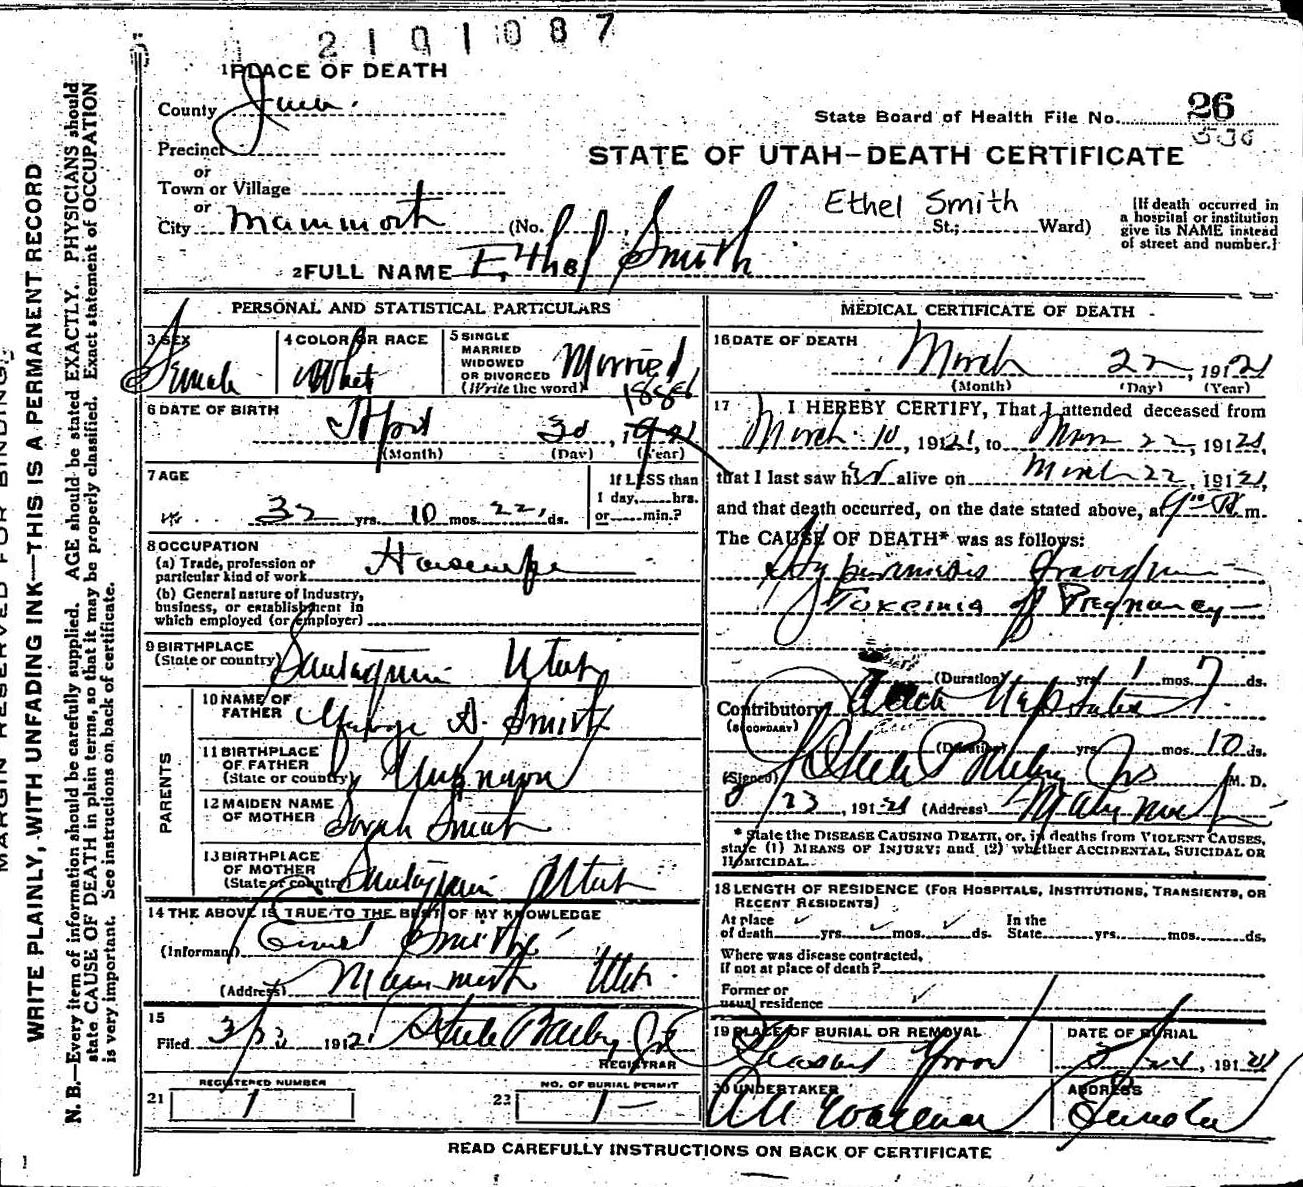 2101087
1 PLACE OF DEATH
County Juab.
State Board of Health File No. 26
536
Precinct
STATE OF UTAH—DEATH CERTIFICATE
or
Town or Village
or
City Mammoth (No. St.; Ward)
Ethel Smith
[If death occurred in
a hospital or institution
give its NAME instead
of street and number.]
2 FULL NAME Ethel Smith
PERSONAL AND STATISTICAL PARTICULARS
3 SEX
Female
4 COLOR OR RACE
White
5 SINGLE
MARRIED
WIDOWED
OR DIVORCED
(Write the word)
Married
6 DATE OF BIRTH
April 30, 1888
(Month) (Day) (Year)
7 AGE
32 yrs. 10 mos. 22, ds.
If LESS than
1 day, hrs.
or min.?
8 OCCUPATION
(a) Trade, profession or
particular kind of work Housewife
(b) General nature of Industry,
business, or establishment in
which employed (or employer)
9 BIRTHPLACE
(State or country) Santaquin Utah
PARENTS
10 NAME OF
FATHER George A. Smith
11 BIRTHPLACE
OF FATHER
(State or country) Unknown
12 MAIDEN NAME
OF MOTHER Sarah Smith
13 BIRTHPLACE
OF MOTHER
(State or country) Santaquin Utah
14 THE ABOVE IS TRUE TO THE BEST OF MY KNOWLEDGE
(Informant) Smith
(Address) Mammoth Utah
15
Filed 3/23 1921 Steele Bailey Jr
REGISTRAR
REGISTERED NUMBER
21 1
NO. OF BURIAL PERMIT
22 1
MEDICAL CERTIFICATE OF DEATH
16 DATE OF DEATH
March 22, 1921
(Month) (Day) (Year)
17 I HEREBY CERTIFY, That I attended deceased from
March 10, 1921, to Mar 22, 1921,
that I last saw her alive on March 22, 1921,
and that death occurred, on the date stated above, at 9 A m.
The CAUSE OF DEATH* was as follows:
Toxemia of Pregnancy
(Duration) yrs. 1 mos. 7 ds.
Contributory
(SECONDARY)
(Duration) yrs. mos. 10 ds.
(Signed) Steele Bailey Jr M. D.
3/23, 1921 (Address) Mammoth
* State the DISEASE CAUSING DEATH, or, in deaths from VIOLENT CAUSES,
state (1) MEANS OF INJURY; and (2) whether ACCIDENTAL, SUICIDAL OR
HOMICIDAL.
18 LENGTH OF RESIDENCE (FOR HOSPITALS, INSTITUTIONS, TRANSIENTS, OR
RECENT RESIDENTS)
At place
of death yrs. mos. ds.
In the
State yrs. mos. ds.
Where was disease contracted,
if not at place of death?
Former or
usual residence
19 PLACE OF BURIAL OR REMOVAL
Pleasant Grove
DATE OF BURIAL
3/24, 1921
20 UNDERTAKER
ADDRESS
Eureka
READ CAREFULLY INSTRUCTIONS ON BACK OF CERTIFICATE
MARGIN RESERVED FOR BINDING
WRITE PLAINLY, WITH UNFADING INK—THIS IS A PERMANENT RECORD
N. B.—Every item of information should be carefully supplied. AGE should be stated EXACTLY. PHYSICIANS should
state CAUSE OF DEATH in plain terms, so that it may be properly classified. Exact statement of OCCUPATION
is very important. See instructions on back of certificate.